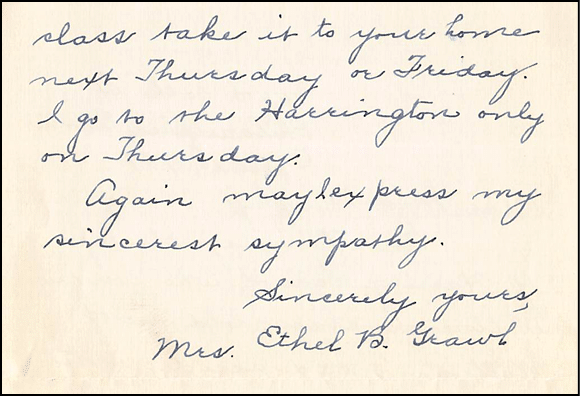 class take it to your home
next Thursday or Friday.
I go to the Harrington only
on Thursday.
Again may I express my
sincerest sympathy.
Sincerely yours,
Mrs. Ethel B. Grawl